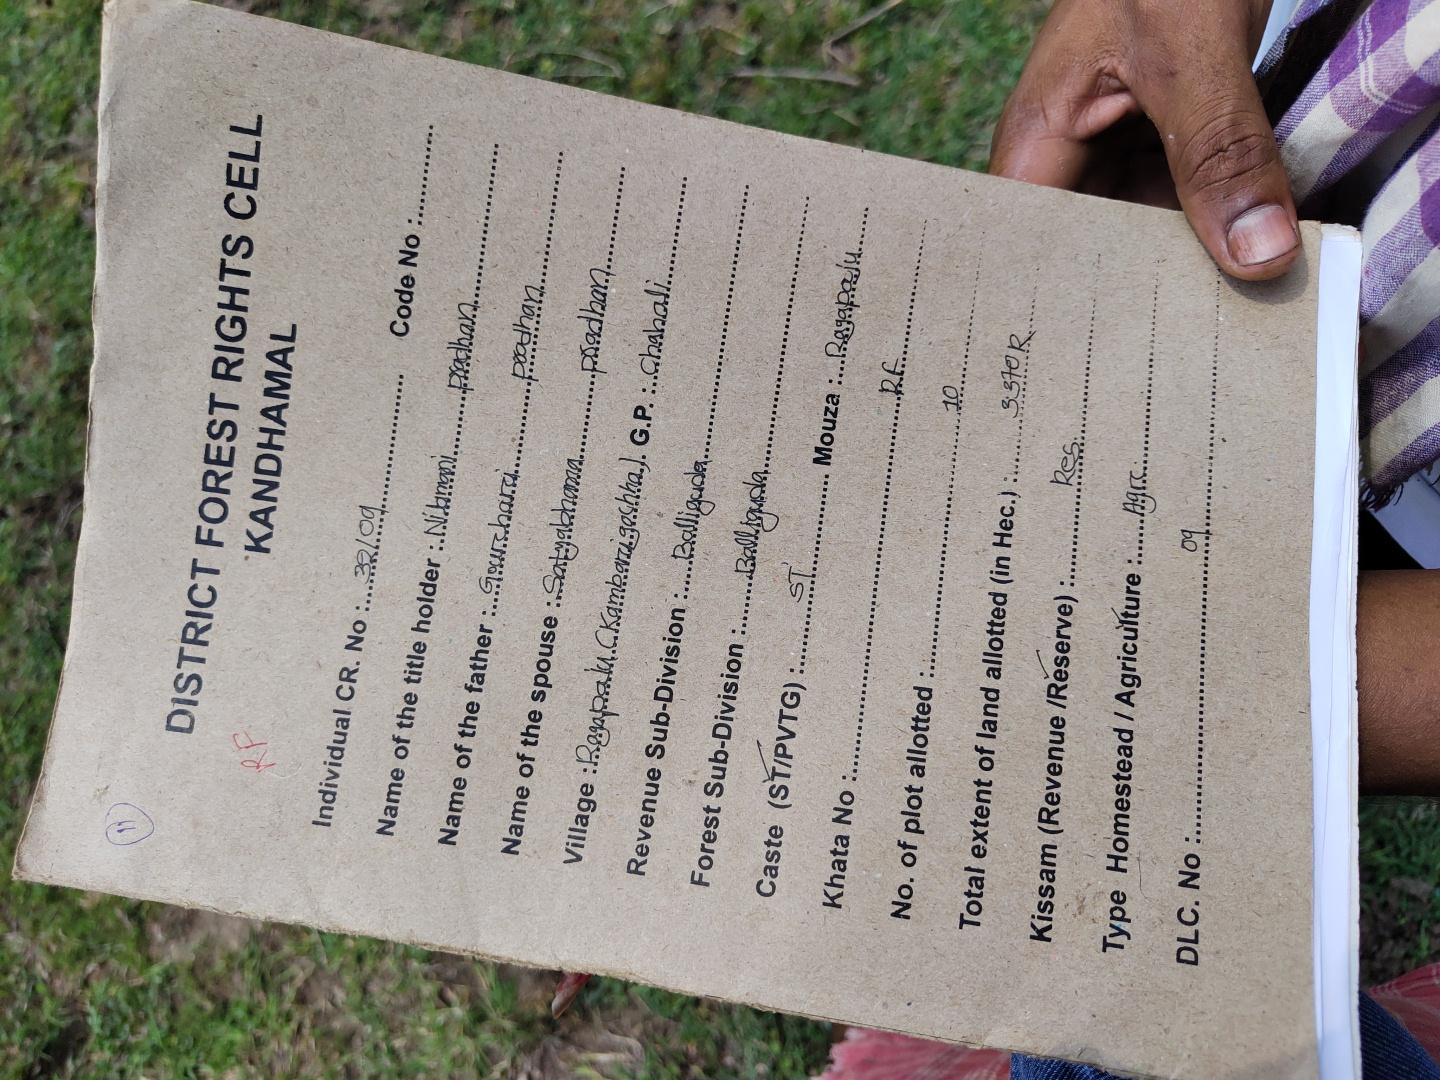 11
RF
DISTRICT FOREST RIGHTS CELL
KANDHAMAL
Individual CR. No : 32/09 Code No :
Name of the title holder : Nilamani pradhan
Name of the father : Gourcharai pradhan
Name of the spouse : Satyabhama pradhan
Village : Ragapaju G.P. : Chahali
Revenue Sub-Division : Balliguda
Forest Sub-Division : Balliguda
Caste (ST/PVTG) : ST Mouza : Ragapaju
Khata No : RF
No. of plot allotted : 10
Total extent of land allotted (in Hec.) :
Kissam (Revenue /Reserve) : Res.
Type Homestead / Agriculture : Agrc
DLC. No : 09